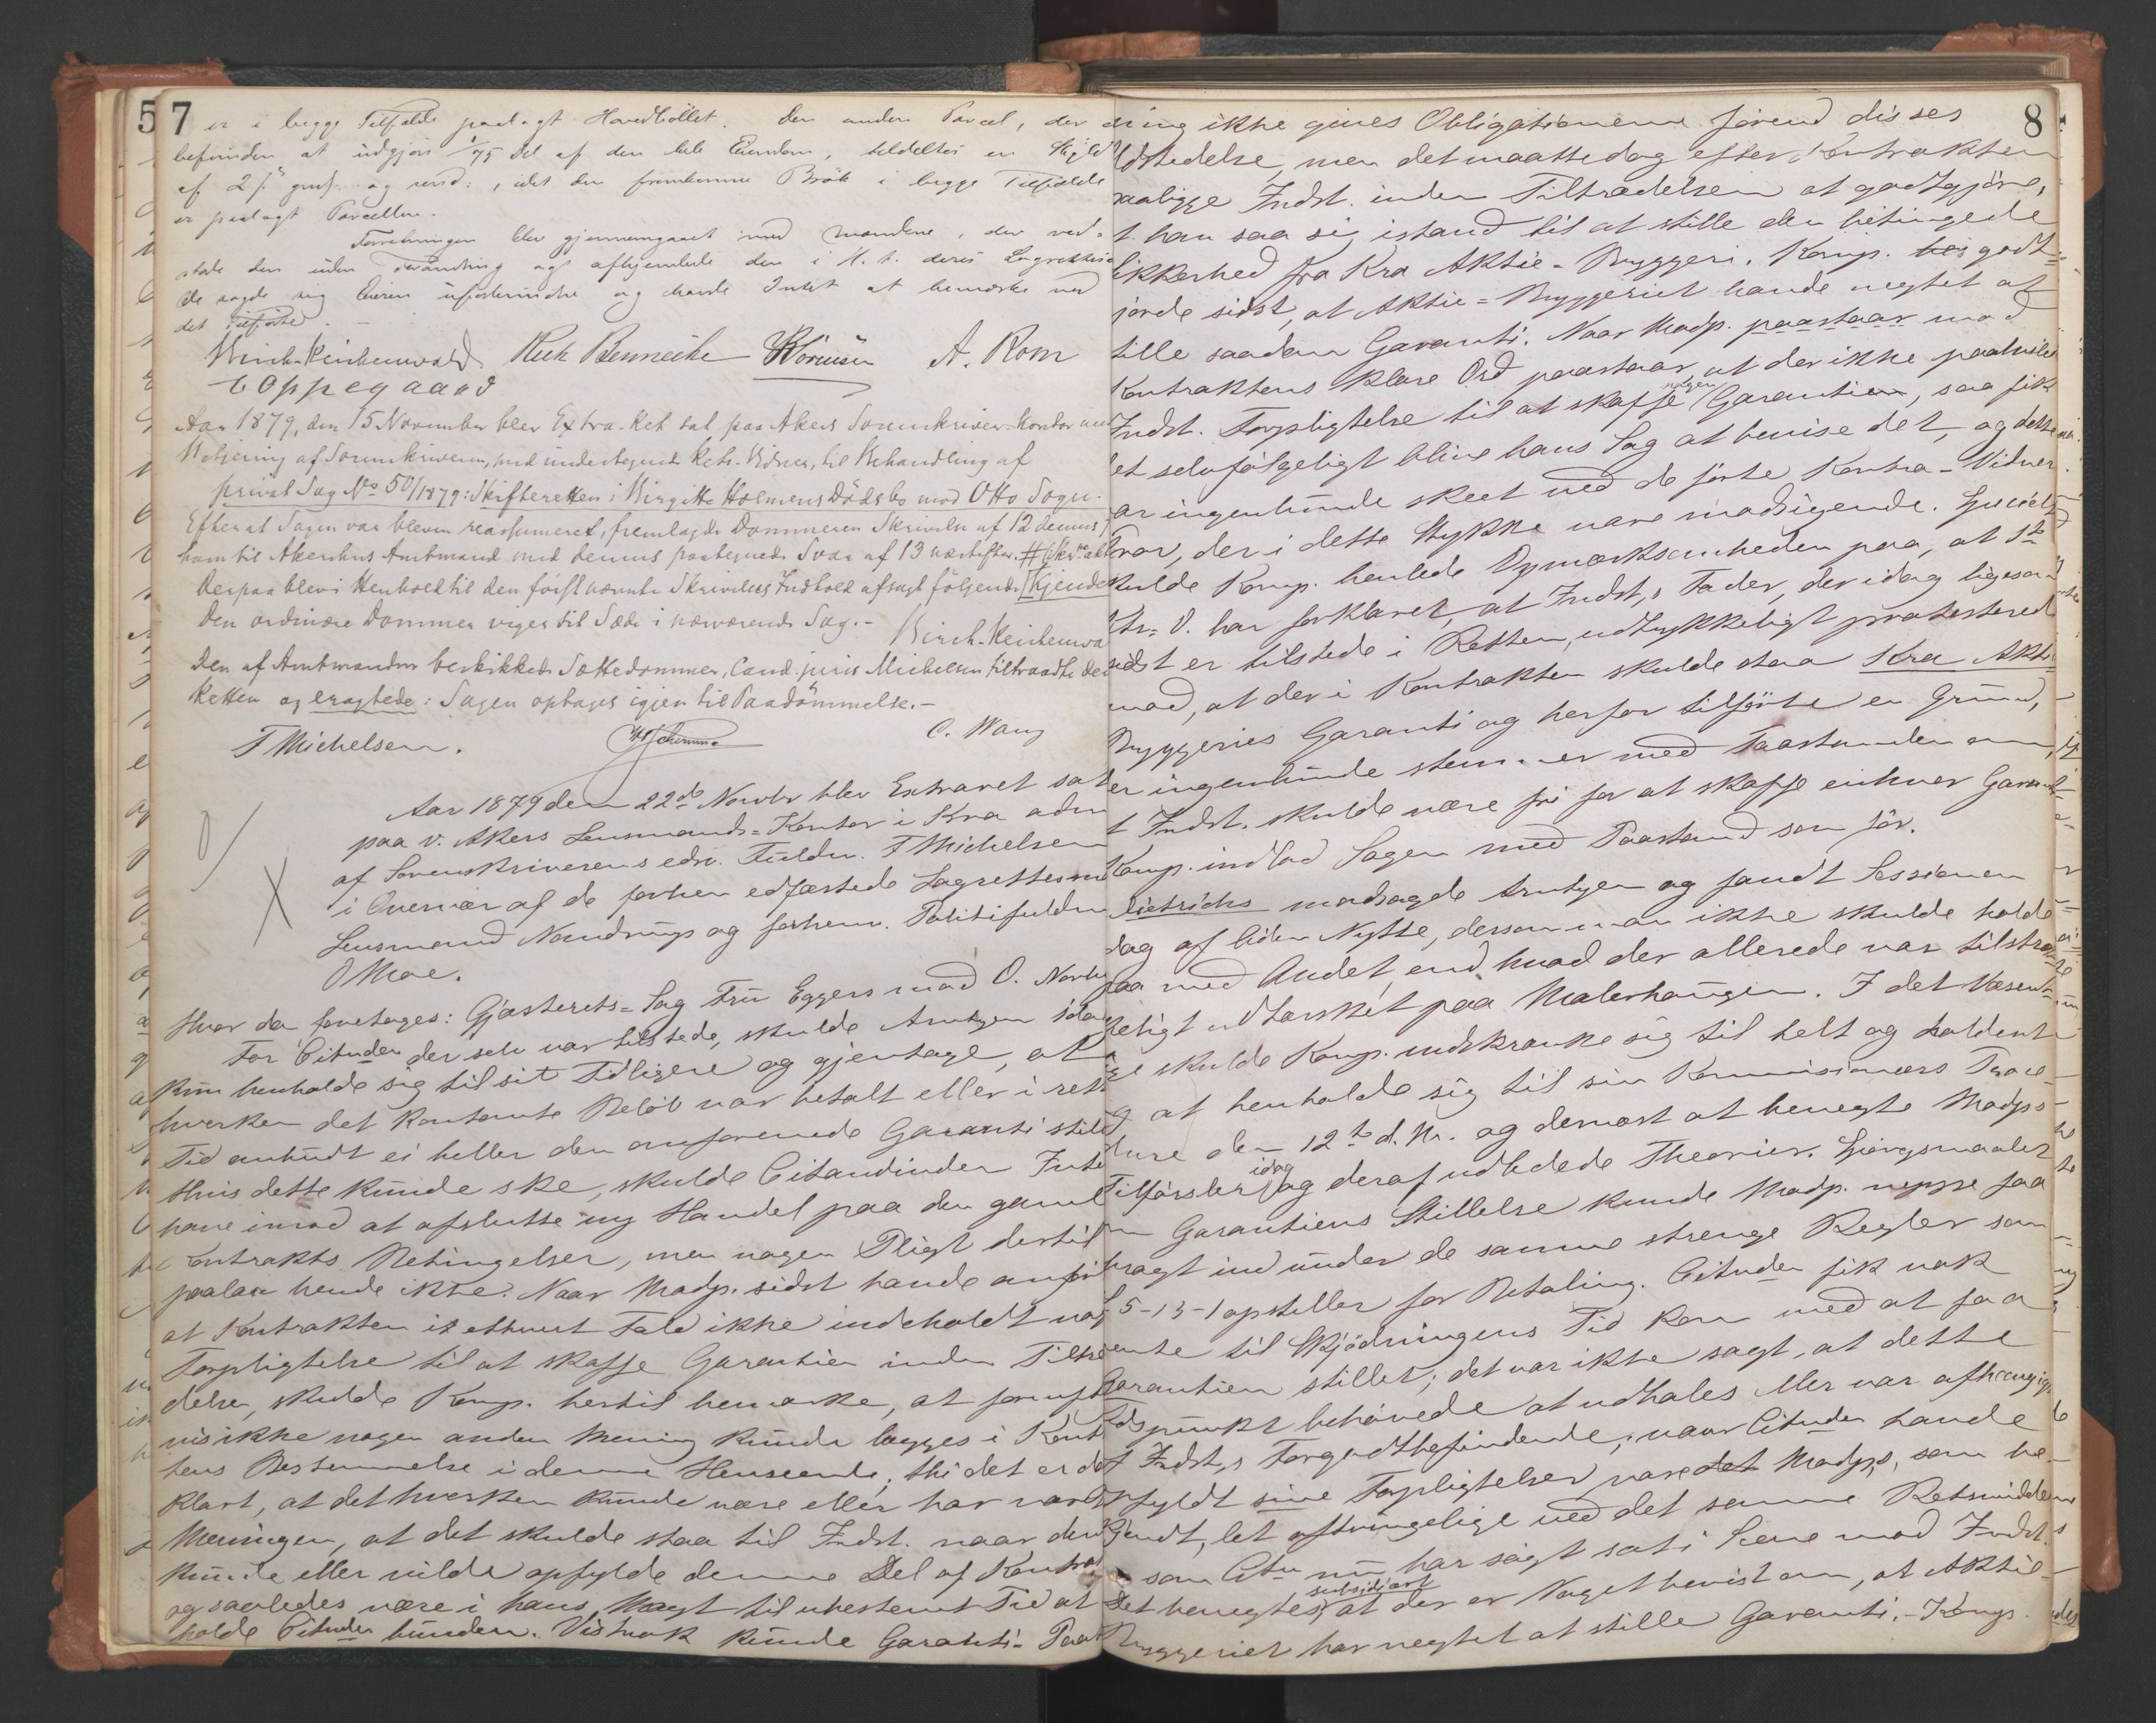 57
er i begge Tilfælde paalagt Hovedböllet. Den anden Parcel, der
befinden at udgjøre 1/75 Del af den hele Eiendom, tildeltes en Skyld
af 2 ß og revid: , idet den fremkomne Brök i begge Tilfælde
er paalagt Parcellen.
Forretningen blev gjennemgaaet med Mændene, der ved=
stode den uden og afhjemlede den i H. t. deres Lagrettesed
de sagde sig Eieren ufosterindre og havde Intet at bemærke ved
det Tilførte. —
Birch-Reichenwald A. Rom
C Oppegaard
Aar 1879, den 15 November blev Extra-Ret sat paa Akers Sorenskriver-Kontor under
Betjening af Sorenskriveren, med undertegnede Rets-Vidner, til Behandling af
privat Sag No 50/1879: Skifteretten i Birgitte Holmens Dödsbo mod Otto Sogn.
Efter at Sagen var bleven reassumeret, fremlagde Dommeren Skrivelse af 12 dennes fra
ham til Akershus Amtmand med dennes paategnede Svar af 13 næstefter.
Derpaa blev i Henhold til den först nævnte Skrivelses Indhold afsagt fölgende Kjendelse
Den ordinære Dommer viger sit Sæde i nærværende Sag. —
Birch-Reichenwa
Den af Amtmanden beskikkede Sættedommer, Cand. juris Michelsen tiltraadte der
Retten og eragtede: Sagen optages igjen til Paadömmelse. —
F Michelsen. C. Wang
Aar 1879 den 22de Novbr blev Extraret sat
paa v. Akers Lensmands=Kontor i Kra adm
af Sorenskriverens edsv. Fuldm. F Michelsen
i Overvær af de forhen edfæstede Lagrettesmænd
Lensmand Nandrup og forhenv. Politifuldm
O Moe.
Hvor da foretoges: Gjæsterets=Sag Fru Eggers mod O. Norby
For Cituden der selv var tilstede, skulde Arntzen idag
kun henholde sig til sit Tidligere og gjentage, at
hverken det kontante Beløb var betalt eller i rette
Tid anbudt ei heller den omforenede Garanti stillet
Hvis dette kunde ske, skulde Citandinden Intet
have imod at afslutte ny Handel paa den gamle
Kontrakts Betingelser, men nogen Pligt dertil
paalaa hende ikke. Naar Madp. sidst havde anført
at Kontrakten i ethvert Fald ikke indeholdt nogen
Forpligtelse til at skaffe Garantien inden Tiltræ
delsen, skulde Komp. hertil bemærke, at fornuftig
vis ikke nogen anden Mening kunde lægges i Kontrak
tens Bestemmelse i denne Henseende; thi det er dog
klart, at det hverken kunde være eller har været
Meningen, at det skulde staa til Indst. naar den
kunde eller vilde opfylde denne Del af Kontrakten
og saaledes være i hans Magt til ubestemt Tid at
holde Cituden bunden. Vistnok kunde Garanti=Paat
8
dning ikke gives Obligationerne førend disses
Udstedelse, men det maatte dog efter Kontrakten
paaligge Indst. inden Tiltrædelsen at godtgjøre,
t han saa sig istand til at stille den betingede
ikkerhed fra Kra Aktie=Bryggeri. Komp. godt=
jorde sidst, at Aktie=Bryggeriet havde negtet at
stille saadan Garanti. Naar Madp. paastaar mod
Kontraktens klare Ord paastaar, at der ikke paahviled
Indst. Forpligtelse til at skaffe nogen Garantien, saa fik
et selvfølgeligt blive hans Sag at bevise det, og dette
ar ingenlunde skeet ved de førte Kontra=Vidner.
var, der i dette Stykke vare modsigende. Specielt
skulde Komp. henlede Opmærksomheden paa, at 1te
Ktr=V. har forklaret, at Indst,s Fader, der idag ligesom
sidst er tilstede i Retten, udtrykkeligt protesterede
mod, at der i Kontrakten skulde staa Kra Aktie
Bryggeries Garanti og herfor tilførte en Grund,
er ingenlunde stemmer med Paastanden om,
t Indst. skulde være fri for at skaffe enhver Garanti
Komp. indlod Sagen med Paastand som før.
Dietrichs modsagde Arntzen og fandt Sessionen
dag af liden Nytte, dersom man ikke skulde holde
paa med Andet, end hvad der allerede var tilstræk
keligt udtærsket paa Malerhaugen. I det Væsent
ige skulde Komp. indskrænke sig til helt og holdent
g at henholde sig til sin Kommissionærs Proce=
dure den 12te d. M. og dernæst at benegte Madps
Tilførsler idag og deraf udledede Theorier. Spørgsmaalet
m Garantiens Stillelse kunde Madp. neppe faa
bragt ind under de samme strenge Regler som
5-13-1 opstiller for Betaling. Cituden fik nok
vente til Skjödningens Tid kom med at faa
Garantien stillet; det var ikke sagt, at dette
Tidspunkt behövede at udhales eller var afhængigt
f Indst,s Forgodtbefindende; naar Cituden havde
opfyldt sine Forpligtelser, vare det Madps, som be=
kjendt, let aftvingelige ved det samme Retsmiddel
som Citn nu har søgt sat i Scene mod Indst.
Det benegtes subsidiært, at der er Noget bevist om, at Aktie=
Bryggeriet har negtet at stille Garanti. – Komp.